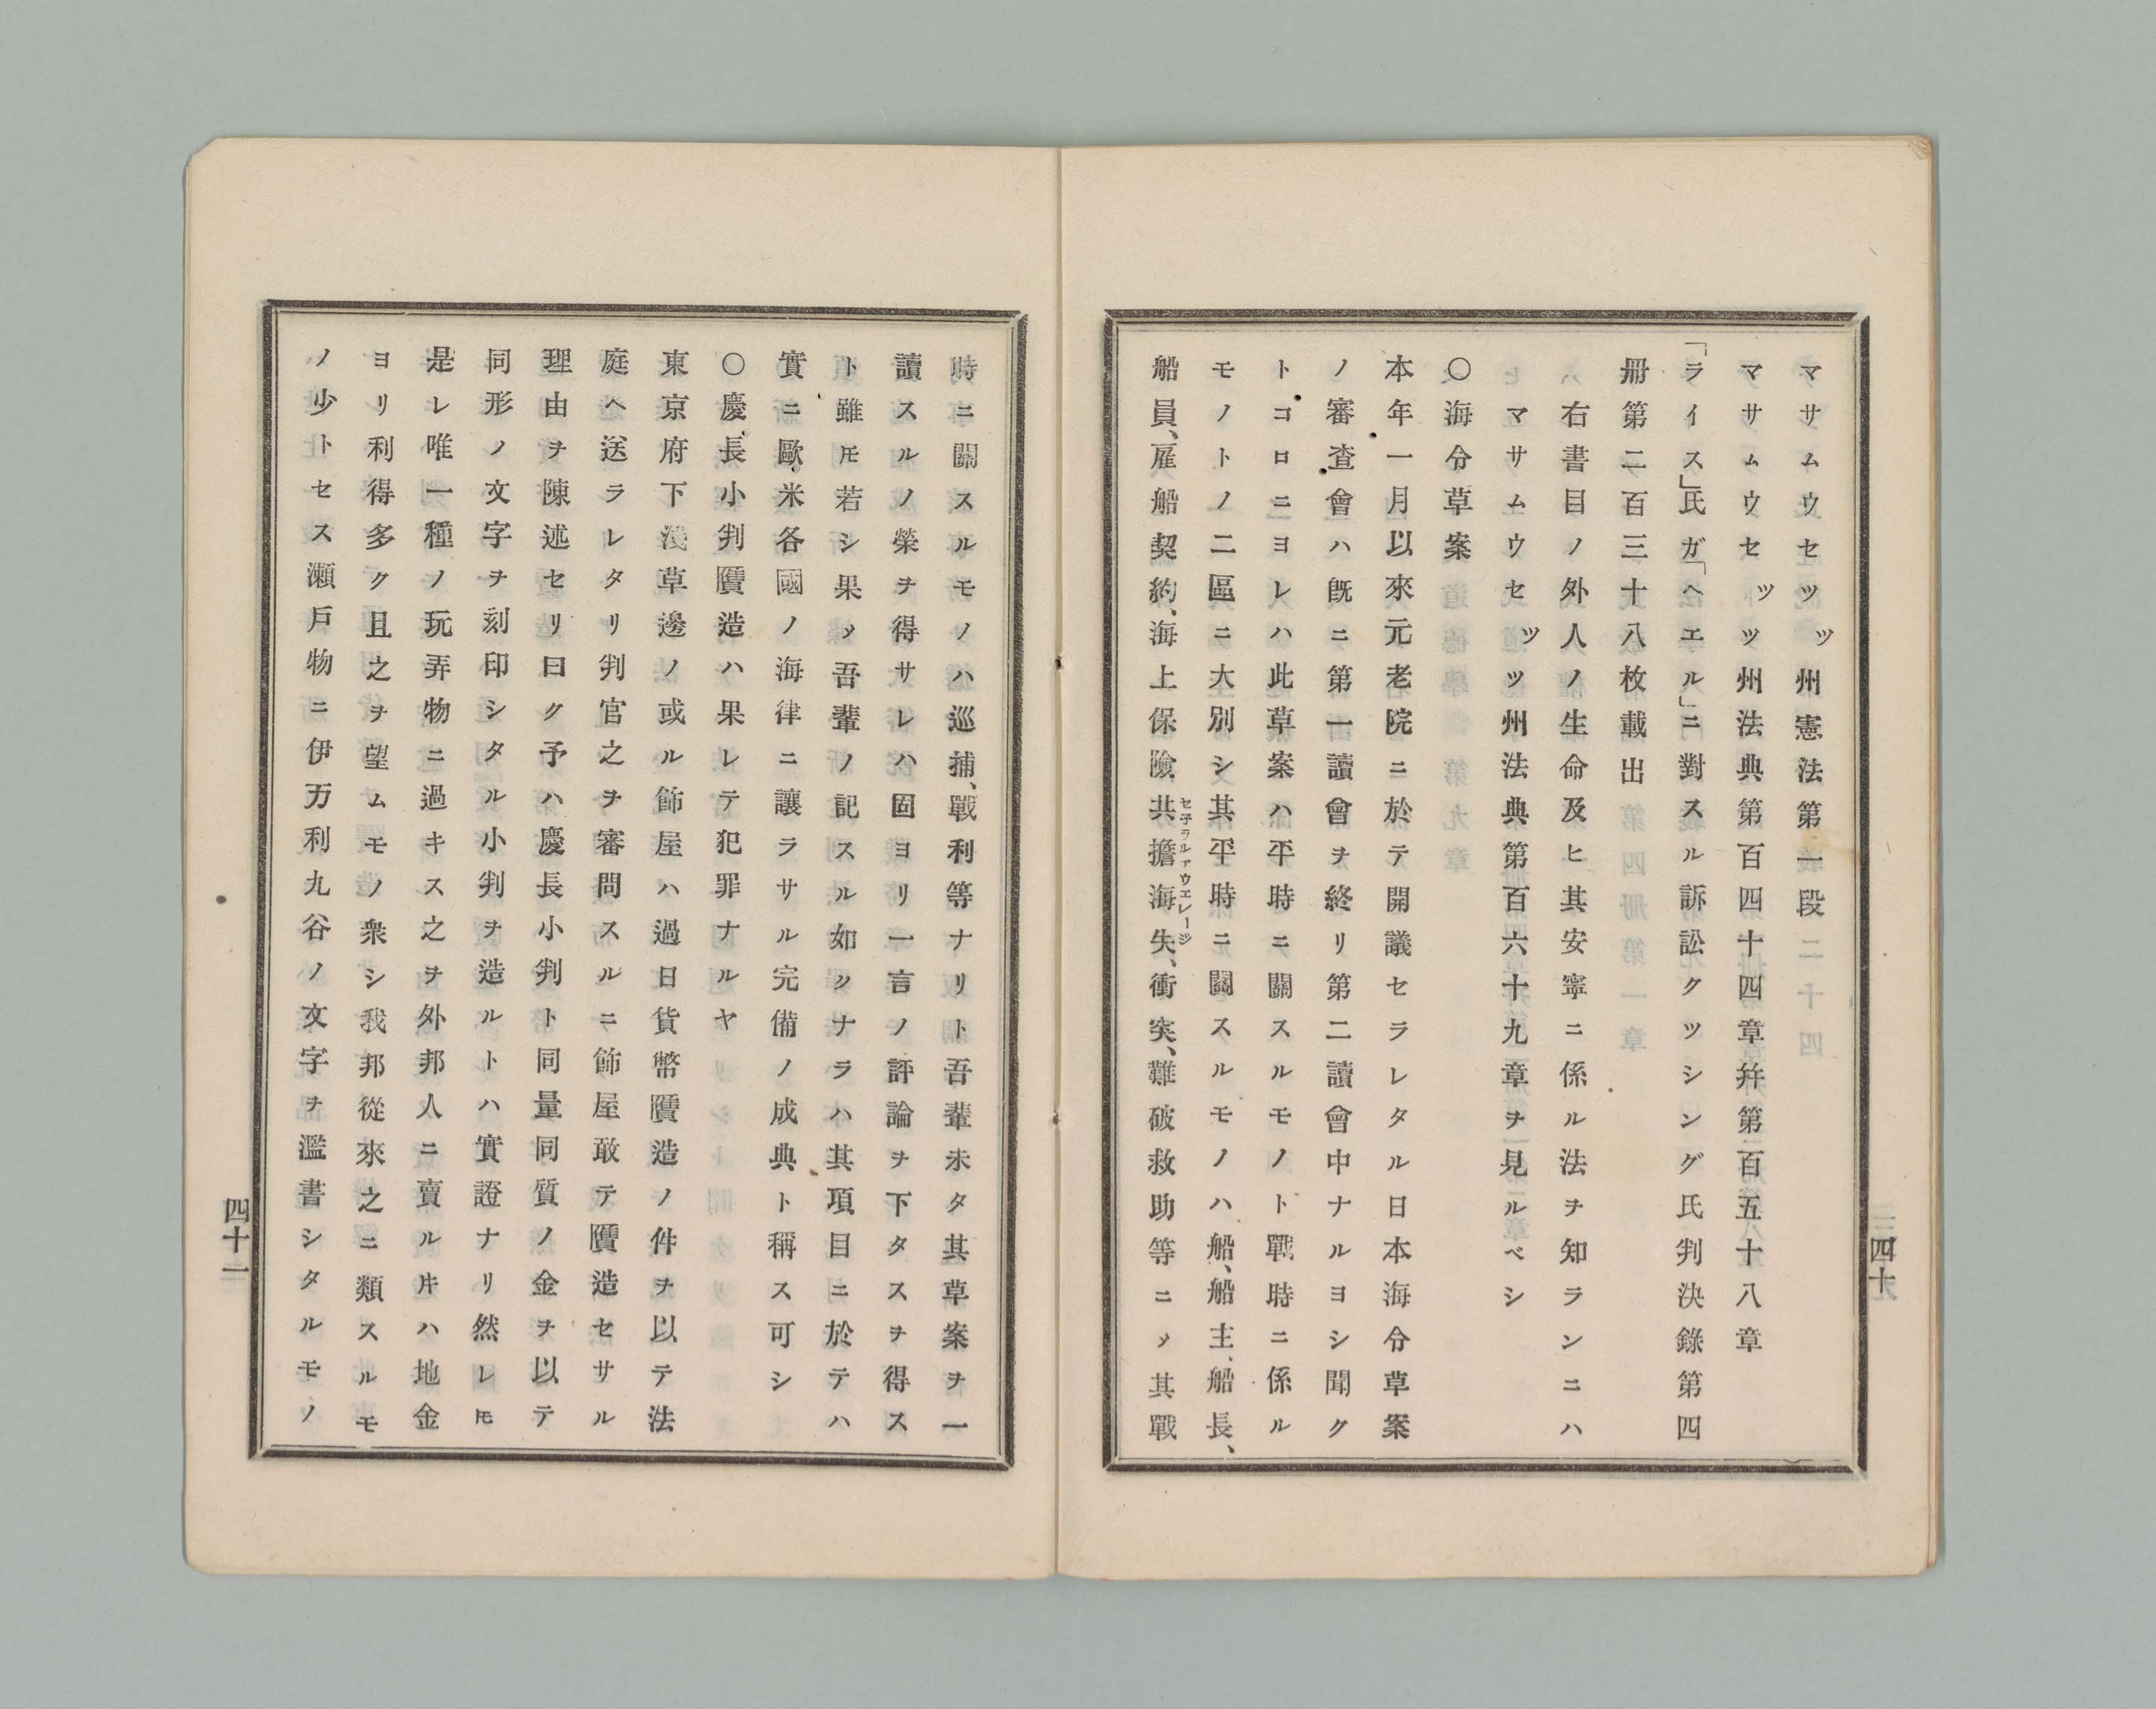 マサムウセッツ州憲法第一段
マサムウセッツ州法典第百四十四章幷第百五十八章
「ライス」氏ガ「ヘエル」ニ對スル訴訟クツシング氏判決錄第四
冊第二百三十八枚載出
右書目ノ外人ノ生命及ヒ其安寧ニ係ル法ヲ知ランニハ
マサムウセッツ州法典第百六十九章ヲ見ルベシ
○海分草案
本年一月以來元老院ニ於テ開議セラレタル日本海分草案
ノ審査會ハ旣ニ第一讀會ヲ終リ第二讀會中ナルヨシ聞ク
トコロニヨレハ此草案ハ平時ニ關スルモノト戰時ニ係ル
モノトノ二區ニ大別シ其平時ニ關スルモノハ船、船主、船長、
船員、雇船契約、海上保險、共擔海失、衝突、難破救助等ニ〆其戰
セ子ラルアウエレージ
四十
時ニ關スルモノハ巡捕、戰利等ナリト吾輩未タ其草案ヲ一
讀スルノ榮ヲ得サレハ固ヨリ一言ノ評論ヲ下タスヲ得ス
ト雖𪜈若シ果〆吾輩ノ記スル如クナラハ其項目ニ於テハ
實ニ歐、米各國ノ海律ニ讓ラサル完備ノ成典ト稱ス可シ
○慶長小判贋造ハ果レテ犯罪ナルヤ
東京府下淺草邊ノ或ル飾屋ハ過日貨幣贋造ノ件ヲ以テ法
庭ヘ送ラレタリ判官之ヲ審問スルニ飾屋敢テ贋造セサル
理由ヲ陳述セリ曰ク予ハ慶長小判ト同量同質ノ金ヲ以テ
同形ノ文字ヲ刻印シタル小判ヲ造ルトハ實證ナリ然レ𪜈
是レ唯一種ノ玩弄物ニ過キス之ヲ外邦人ニ賣ルキハ地金
ヨリ利得多ク且之ヲ望ムモノ衆シ我邦從來之ニ類スルモ
ノ少トセス瀨戸物ニ伊万利九谷ノ文字ヲ濫書シタルモノ
四十一